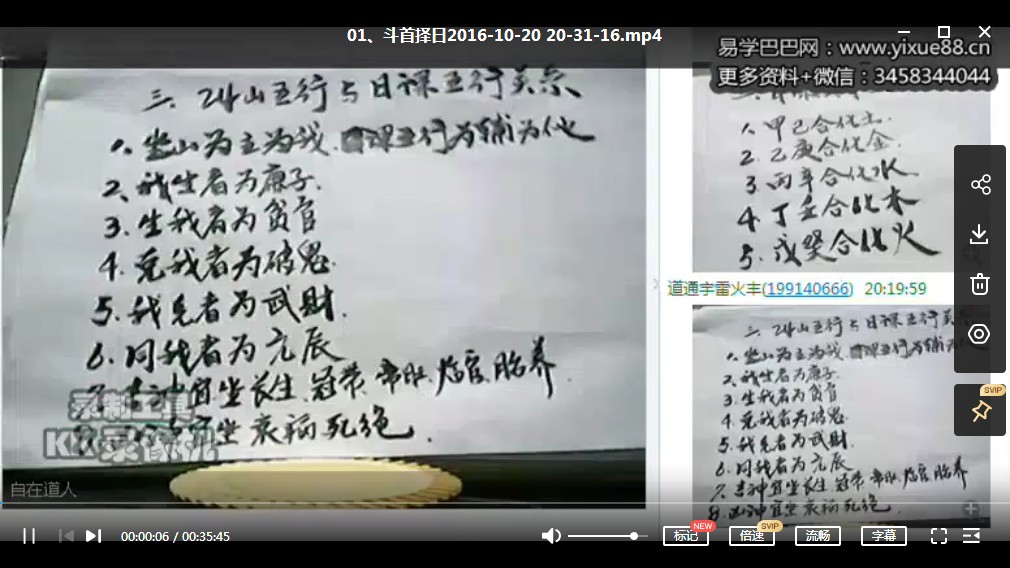 01、斗首择日2016-10-20 20-31-16.mp4
易学巴巴网：www.yixue88.cn
更多资料+微信：3458344044
三、24山五行与日课五行关系
1、坐山为主为我、日课五行为辅为他
2、我生者为廉子.
3、生我者为贪官
4、克我者为破鬼.
5、我克者为武财.
6、同我者为元辰
7、吉神宜坐长生、冠带、帝旺、临官、胎养.
宜坐衰病死绝.
录制工具
KK录像机
自在道人
1、甲己合化土.
2、乙庚合化金.
3、丙辛合化水
4、丁壬合化木
5、戊癸合化火
道通宇雷火丰(199140666) 20:19:59
三、24山五行与日课五行关系
1、坐山为主为我、日课五行为辅为他
2、我生者为廉子.
3、生我者为贪官
4、克我者为破鬼.
5、我克者为武财.
6、同我者为元辰
7、吉神宜坐长生、冠带、帝旺、临官、胎养
8、凶神宜坐衰病死绝.
SVIP
00:00:06 / 00:35:45
标记
NEW
倍速
SVIP
流畅
字幕